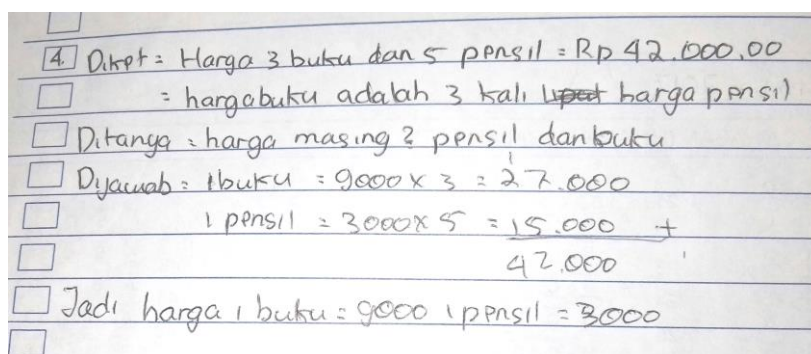 4. Diket = Harga 3 buku dan 5 pensil = Rp 42.000,00
= harga buku adalah 3 kali harga pensil
Ditanya = harga masing2 pensil dan buku
Dijawab = 1 buku = 9000 x 3 = 27.000
1 pensil = 3000 x 5 = 15.000 +
42.000
Jadi harga 1 buku = 9000 1 pensil = 3000